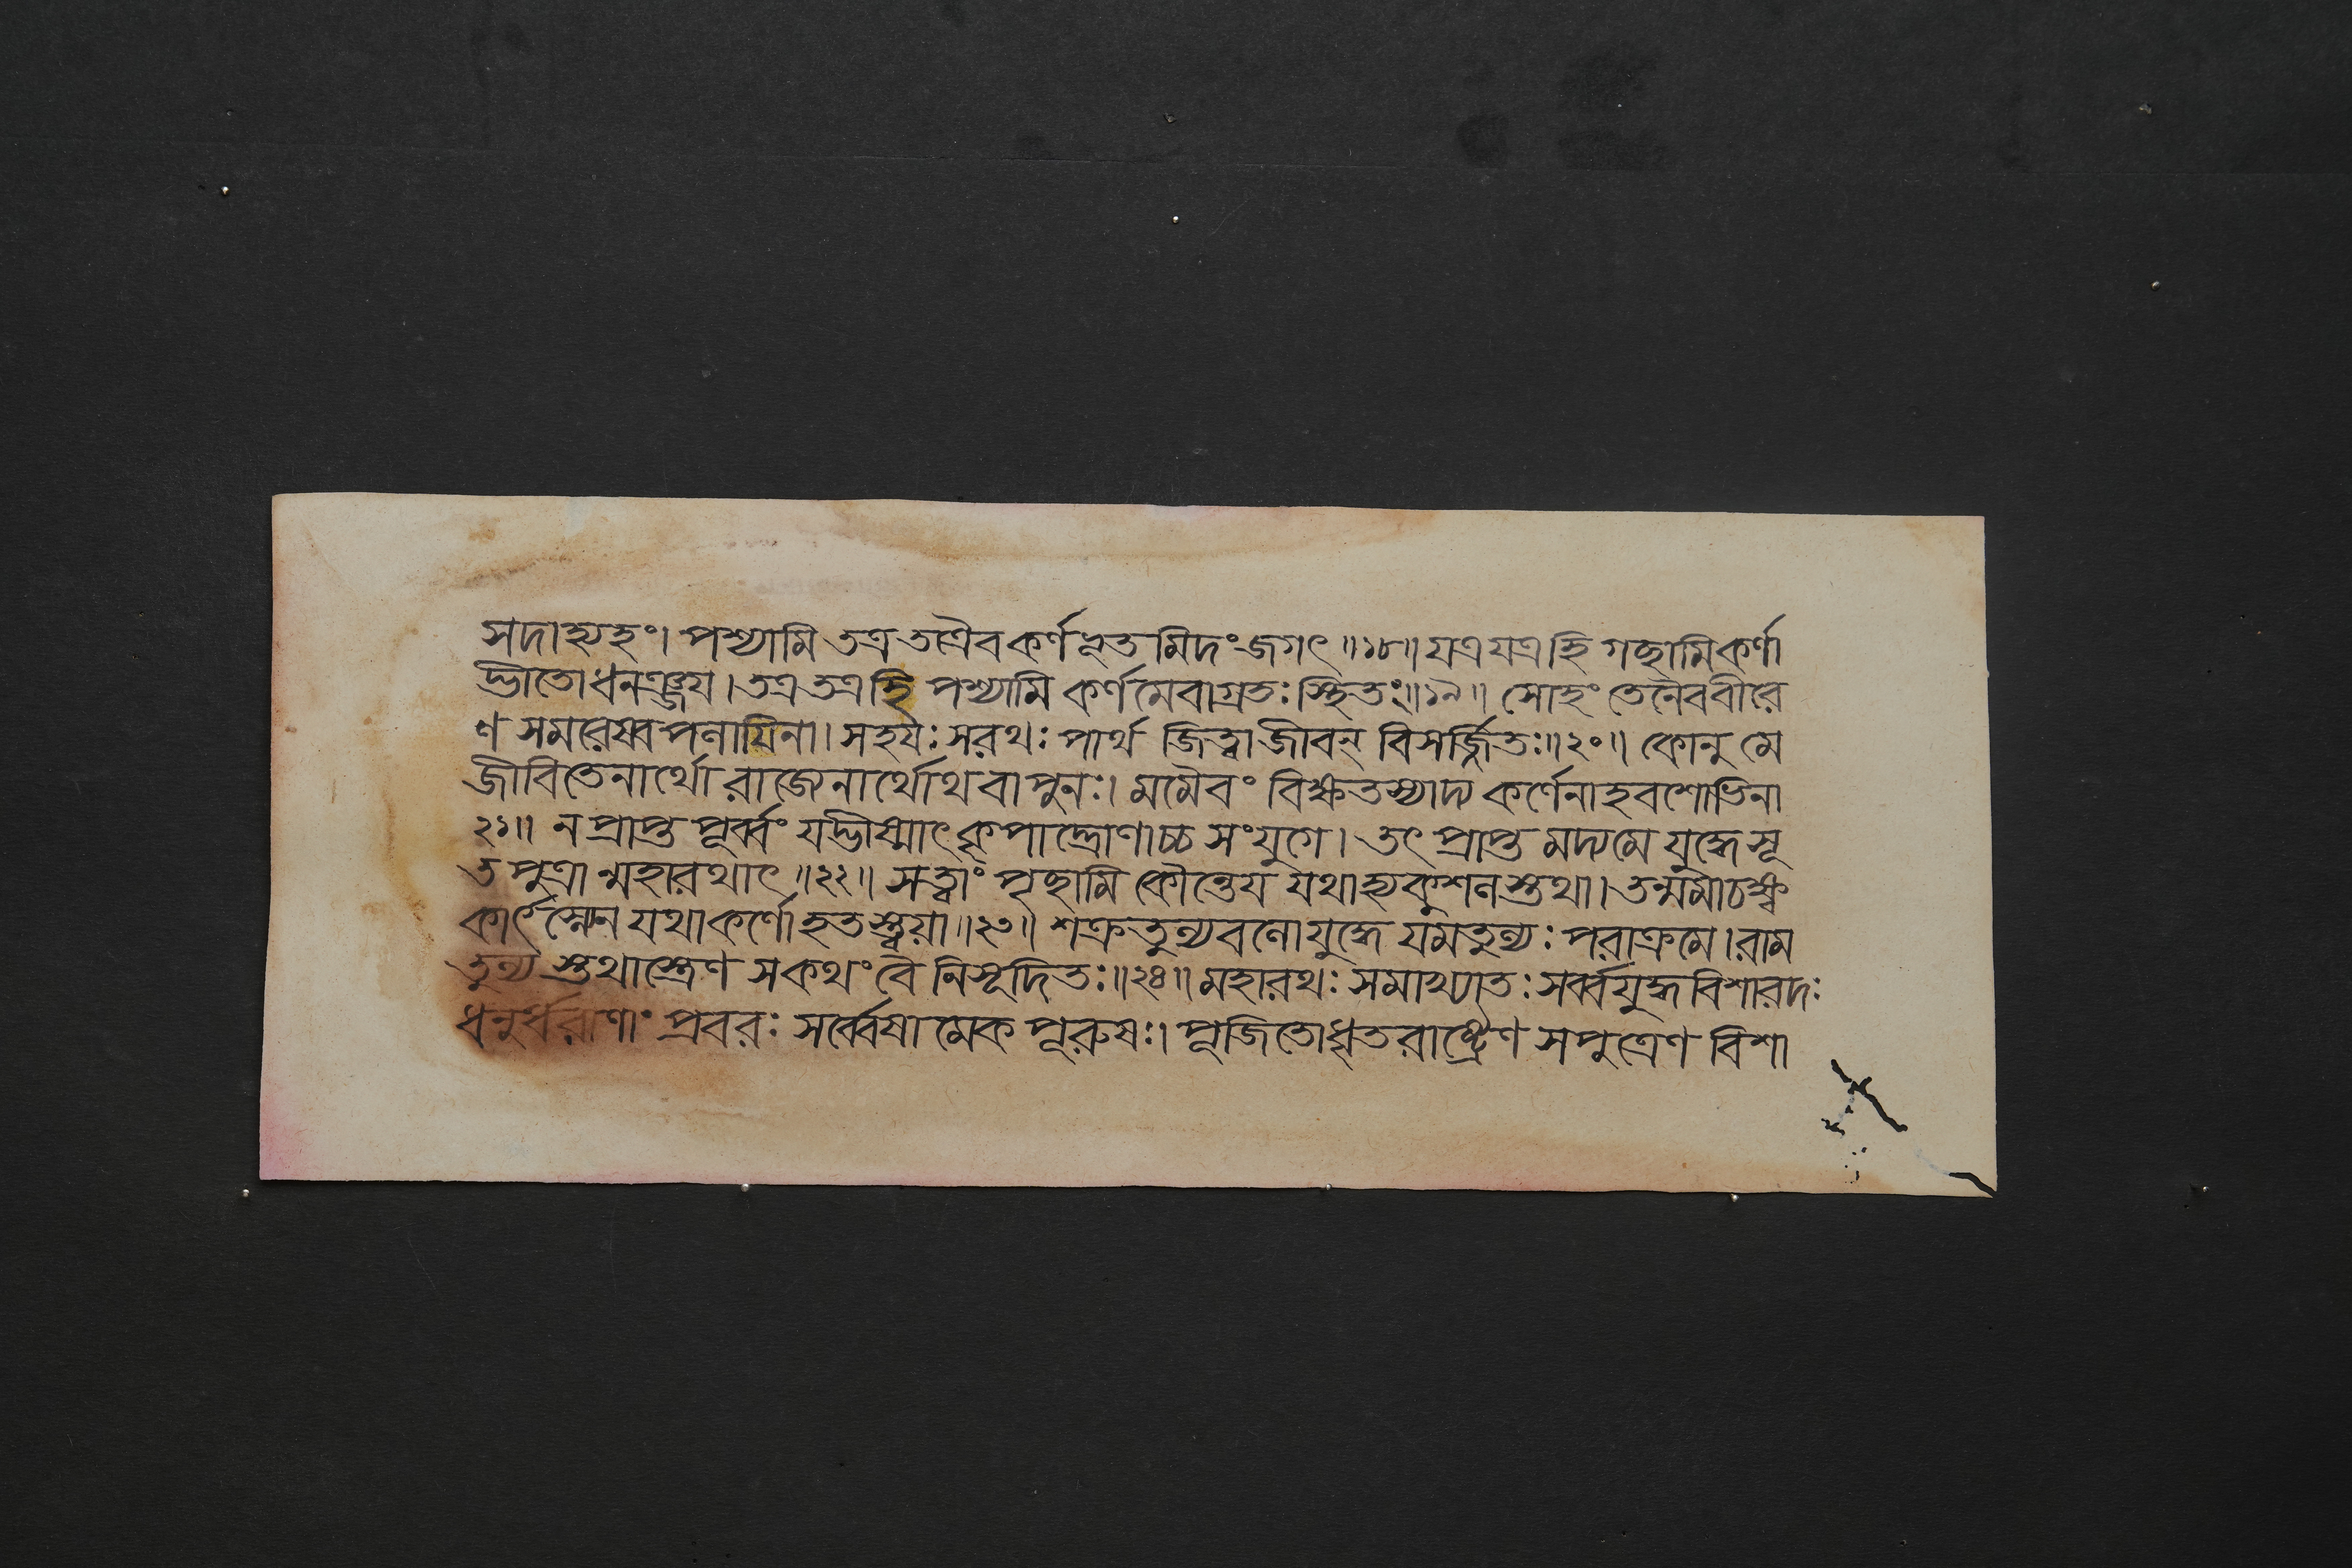 সদাহ্যহং। পশ্যামি তত্র তত্রৈব কর্ণভূতমিদং জগৎ॥১৮॥ যত্র যত্র হি গচ্ছামি কর্ণা
দ্ভীতো ধনঞ্জয়। তত্র তত্র হি পশ্যামি কর্ণমেবাগ্রতঃ স্থিতং॥১৯॥ সোহং তেনৈব বীরে
ণ সমরেষ্বপলায়িনা। সহয়ঃ সরথঃ পার্থ জিত্বা জীবন্ বিসর্জ্জিতঃ॥২০॥ কোনু মে
জীবিতেনার্থো রাজ্যেনার্থোথ বা পুনঃ। মমৈবং বিক্ষতস্যাদ্য কর্ণেনাহবশোভিনা
২১॥ ন প্রাপ্ত পূর্ব্বং যদ্ভীষ্মাৎ কৃপাদ্দ্রোণাচ্চ সংযুগে। তৎ প্রাপ্তমদ্য মে যুদ্ধে সূ
তপুত্রান্মহারথাৎ॥২২॥ সত্ত্বাং পৃচ্ছামি কৌন্তেয় যথাহ্যকুশলস্তথা। তন্মমাচক্ষ্ব
কার্ৎস্নেন যথা কর্ণো হতস্ত্বয়া॥২৩॥ শক্রতুল্যবলো যুদ্ধে যমতুল্যঃ পরাক্রমে। রাম
তুল্যস্তথাস্ত্রেণ স কথং বৈ নিসূদিতঃ॥২৪॥ মহারথঃ সমাখ্যাতঃ সর্ব্বযুদ্ধবিশারদঃ
ধনুর্ধরাণাং প্রবরঃ সর্ব্বেষামেকপূরুষঃ। পূজিতো ধৃতরাষ্ট্রেণ সপুত্রেণ বিশা